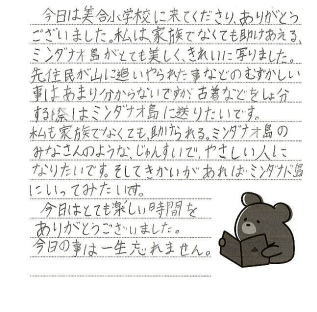 今日は美合小学校に来てくださり、ありがとう
ございました。私は、家族でなくても助けあえる、
ミンダナオ島がとても美しく、きれいに写りました。
先住民が山に追いやられた事などのむずかしい
事はあまり分からないですが、古着などをしょ分
する際はミンダナオ島に送りたいです。
私も家族でなくても、助けられる。ミンダナオ島の
みなさんのような、じゅんすいで、やさしい人に
なりたいです。そしてきかいがあれば、ミンダナオ島
にいってみたいです。
今日はとても楽しい時間を
ありがとうございました。
今日の事は一生忘れません。